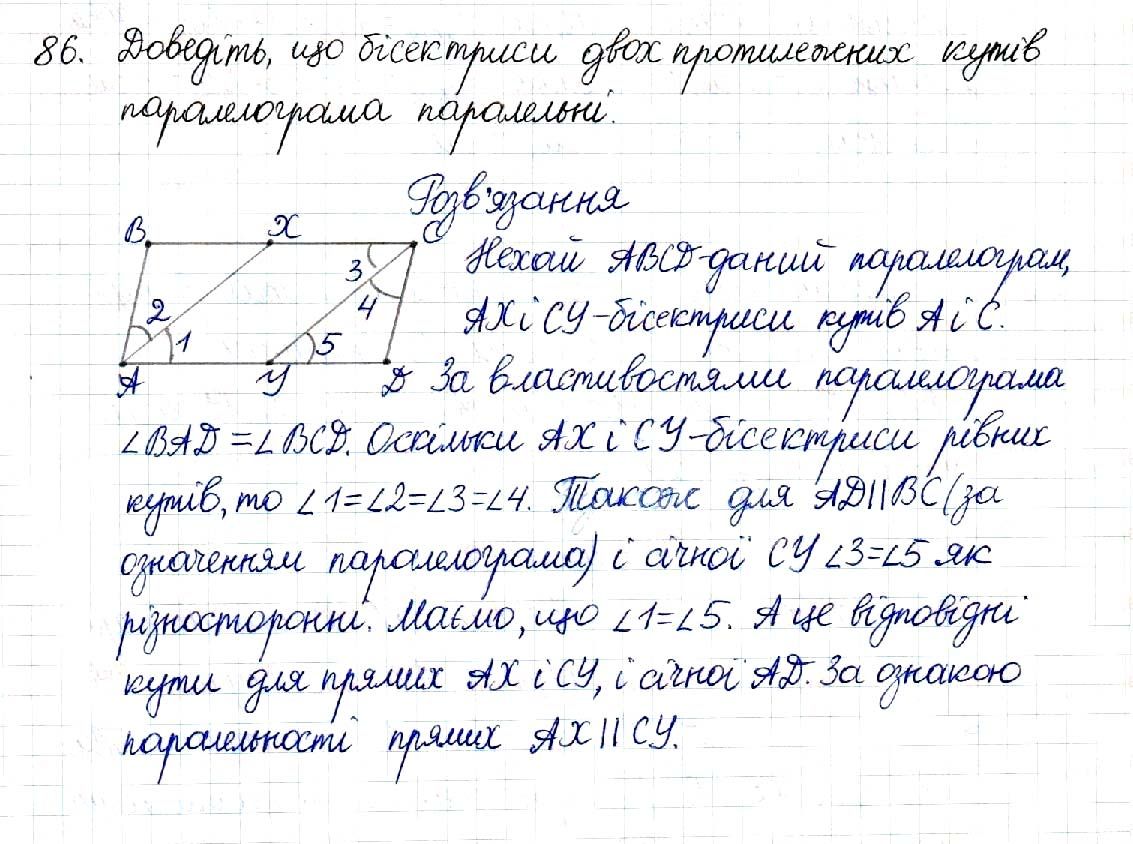 86. Доведіть, що бісектриси двох протилежних кутів
паралелограма паралельні.
Розв'язання
B X C
Нехай ABCD-даний паралелограм,
3
4
2
1
5
AX і CY-бісектриси кутів A і C.
A Y D
За властивостями паралелограма
∠BAD=∠BCD. Оскільки AX і CY-бісектриси рівних
кутів, то ∠1=∠2=∠3=∠4. Також для AD||BC (за
означенням паралелограма) і січної CY ∠3=∠5 як
різносторонні. Маємо, що ∠1=∠5. А це відповідні
кути для прямих AX і CY, і січної AD. За ознакою
паралельності прямих AX||CY.